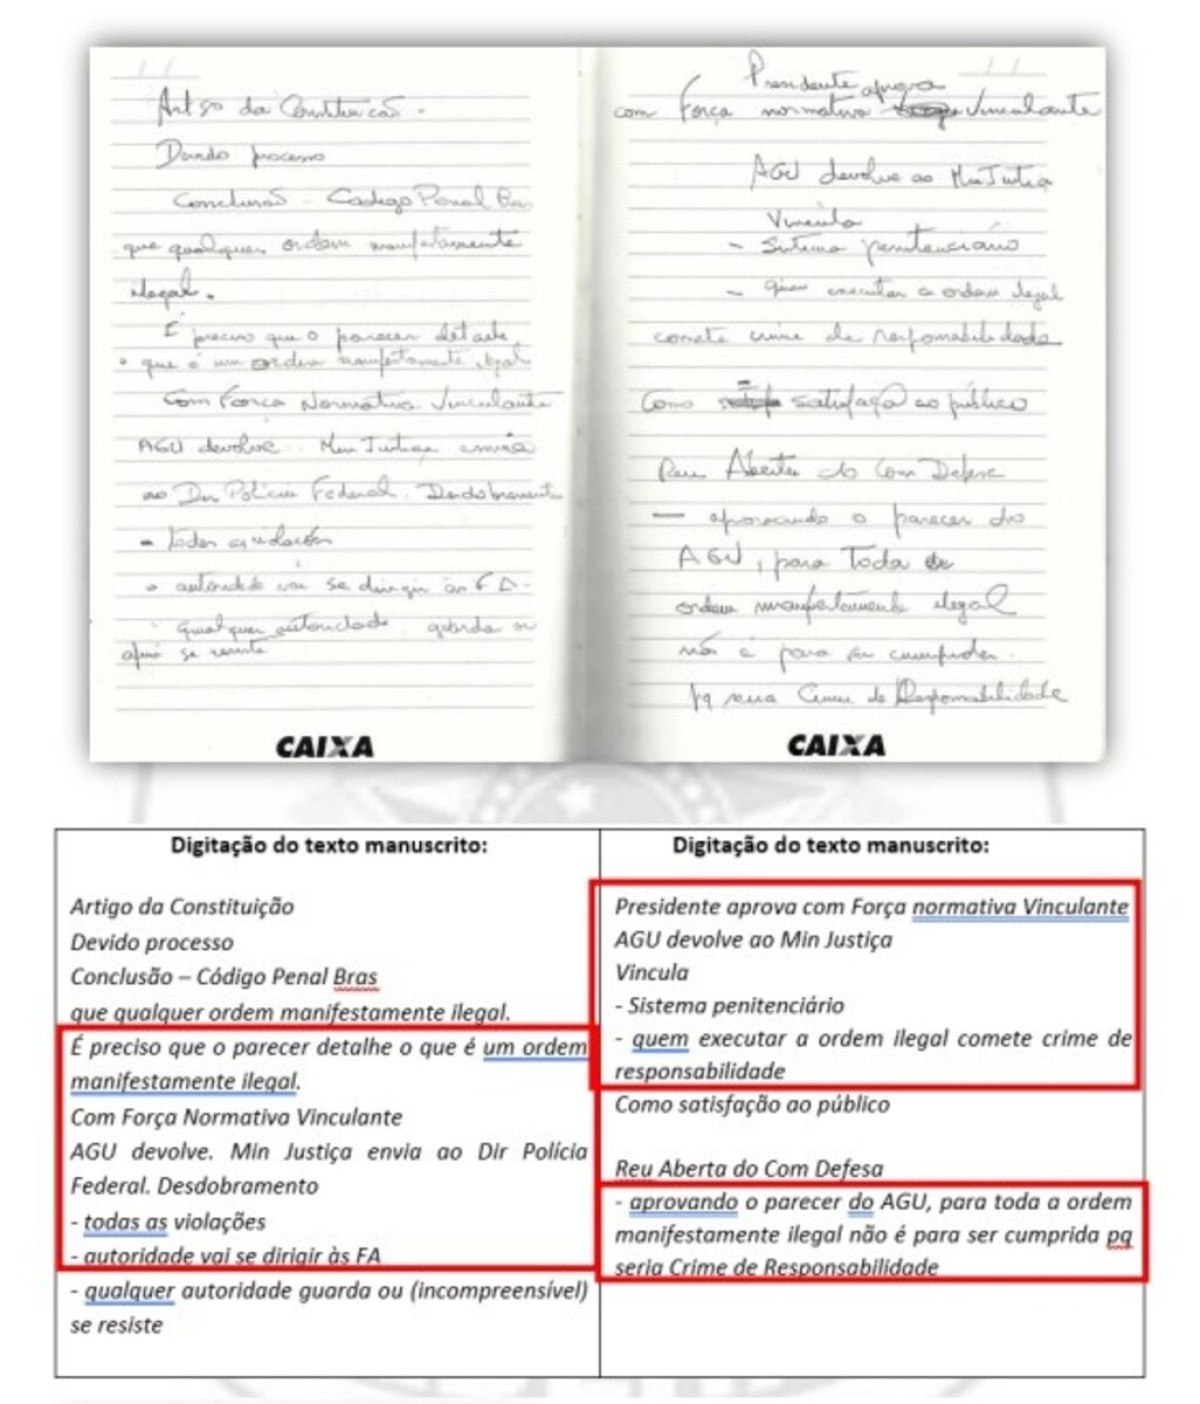 Artgo da Constituição.
Devido processo
Conclusão - Código Penal Bras
que qualquer ordem manifestamente
ilegal.
É preciso que o parecer detalhe
o que é um ordem manifestamente ilegal
Com Força Normativa Vinculante
AGU devolve. Min Justiça envia
ao Dir Polícia Federal. Desdobramento
- todas as violações
- autoridade vai se dirigir às FA-
- qualquer autoridade guarda ou
se resiste
CAIXA
Presidente aprova
com Força normativa Vinculante
AGU devolve ao Min Justiça
Vincula
- Sistema penitenciário
- quem executar a ordem ilegal
comete crime de responsabilidade
Como satisfação ao público
Reu Aberta do Com Defesa
- aprovando o parecer do
AGU, para Toda
ordem manifestamente ilegal
não é para ser cumprida.
pq seria Crime de Responsabilidade
CAIXA
Digitação do texto manuscrito:
Artigo da Constituição
Devido processo
Conclusão – Código Penal Bras
que qualquer ordem manifestamente ilegal.
É preciso que o parecer detalhe o que é um ordem
manifestamente ilegal.
Com Força Normativa Vinculante
AGU devolve. Min Justiça envia ao Dir Polícia
Federal. Desdobramento
- todas as violações
- autoridade vai se dirigir às FA
- qualquer autoridade guarda ou (incompreensível)
se resiste
Digitação do texto manuscrito:
Presidente aprova com Força normativa Vinculante
AGU devolve ao Min Justiça
Vincula
- Sistema penitenciário
- quem executar a ordem ilegal comete crime de
responsabilidade
Como satisfação ao público
Reu Aberta do Com Defesa
- aprovando o parecer do AGU, para toda a ordem
manifestamente ilegal não é para ser cumprida pq
seria Crime de Responsabilidade